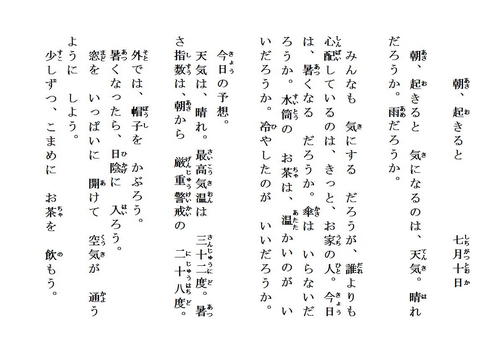 朝、起きると　七月十日
朝、起きると　気になるのは、天気。晴れ
だろうか。雨だろうか。
みんなも　気にする　だろうが、誰よりも
心配しているのは、きっと、お家の人。今日
は、暑くなる　だろうか。傘は　いらないだ
ろうか。水筒の　お茶は、温かいのが　い
いだろうか。冷やしたのが　いいだろうか。
今日の予想。
天気は、晴れ。最高気温は　三十二度。暑
さ指数は、朝から　厳重警戒の　二十八度。
外では、帽子を　かぶろう。
暑くなったら、日陰に　入ろう。
窓を　いっぱいに　開けて　空気が　通う
ように　しよう。
少しずつ、こまめに　お茶を　飲もう。